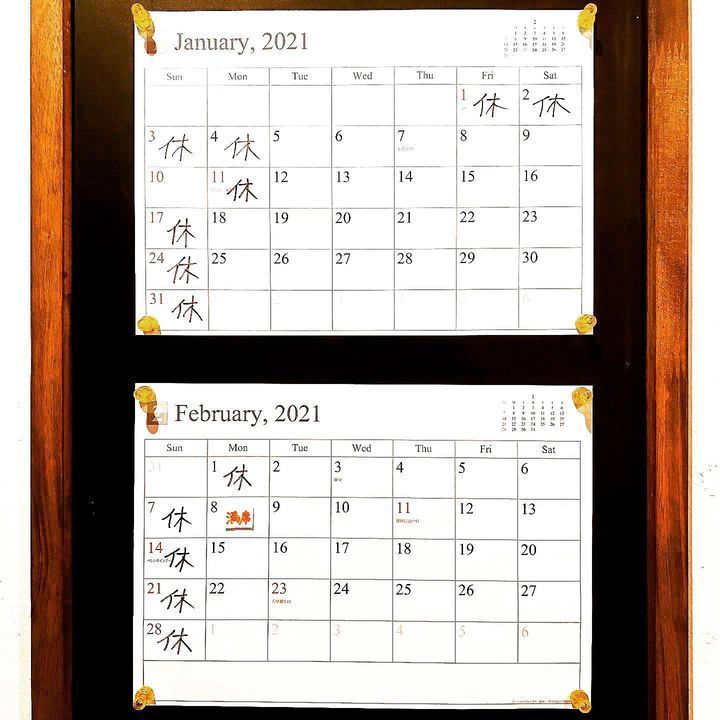 January, 2021
2
Sun Mon Tue Wed Thu Fri Sat
1 休 2 休
3 休 4 休 5 6 7 8 9
10 11 休 12 13 14 15 16
17 休 18 19 20 21 22 23
24 休 25 26 27 28 29 30
31 休
February, 2021
3
Sun Mon Tue Wed Thu Fri Sat
31 1 休 2 3 4 5 6
7 休 8 満席 9 10 11 12 13
14 休 15 16 17 18 19 20
バレンタインデー
21 休 22 23 24 25 26 27
天皇誕生日
28 休 1 2 3 4 5 6